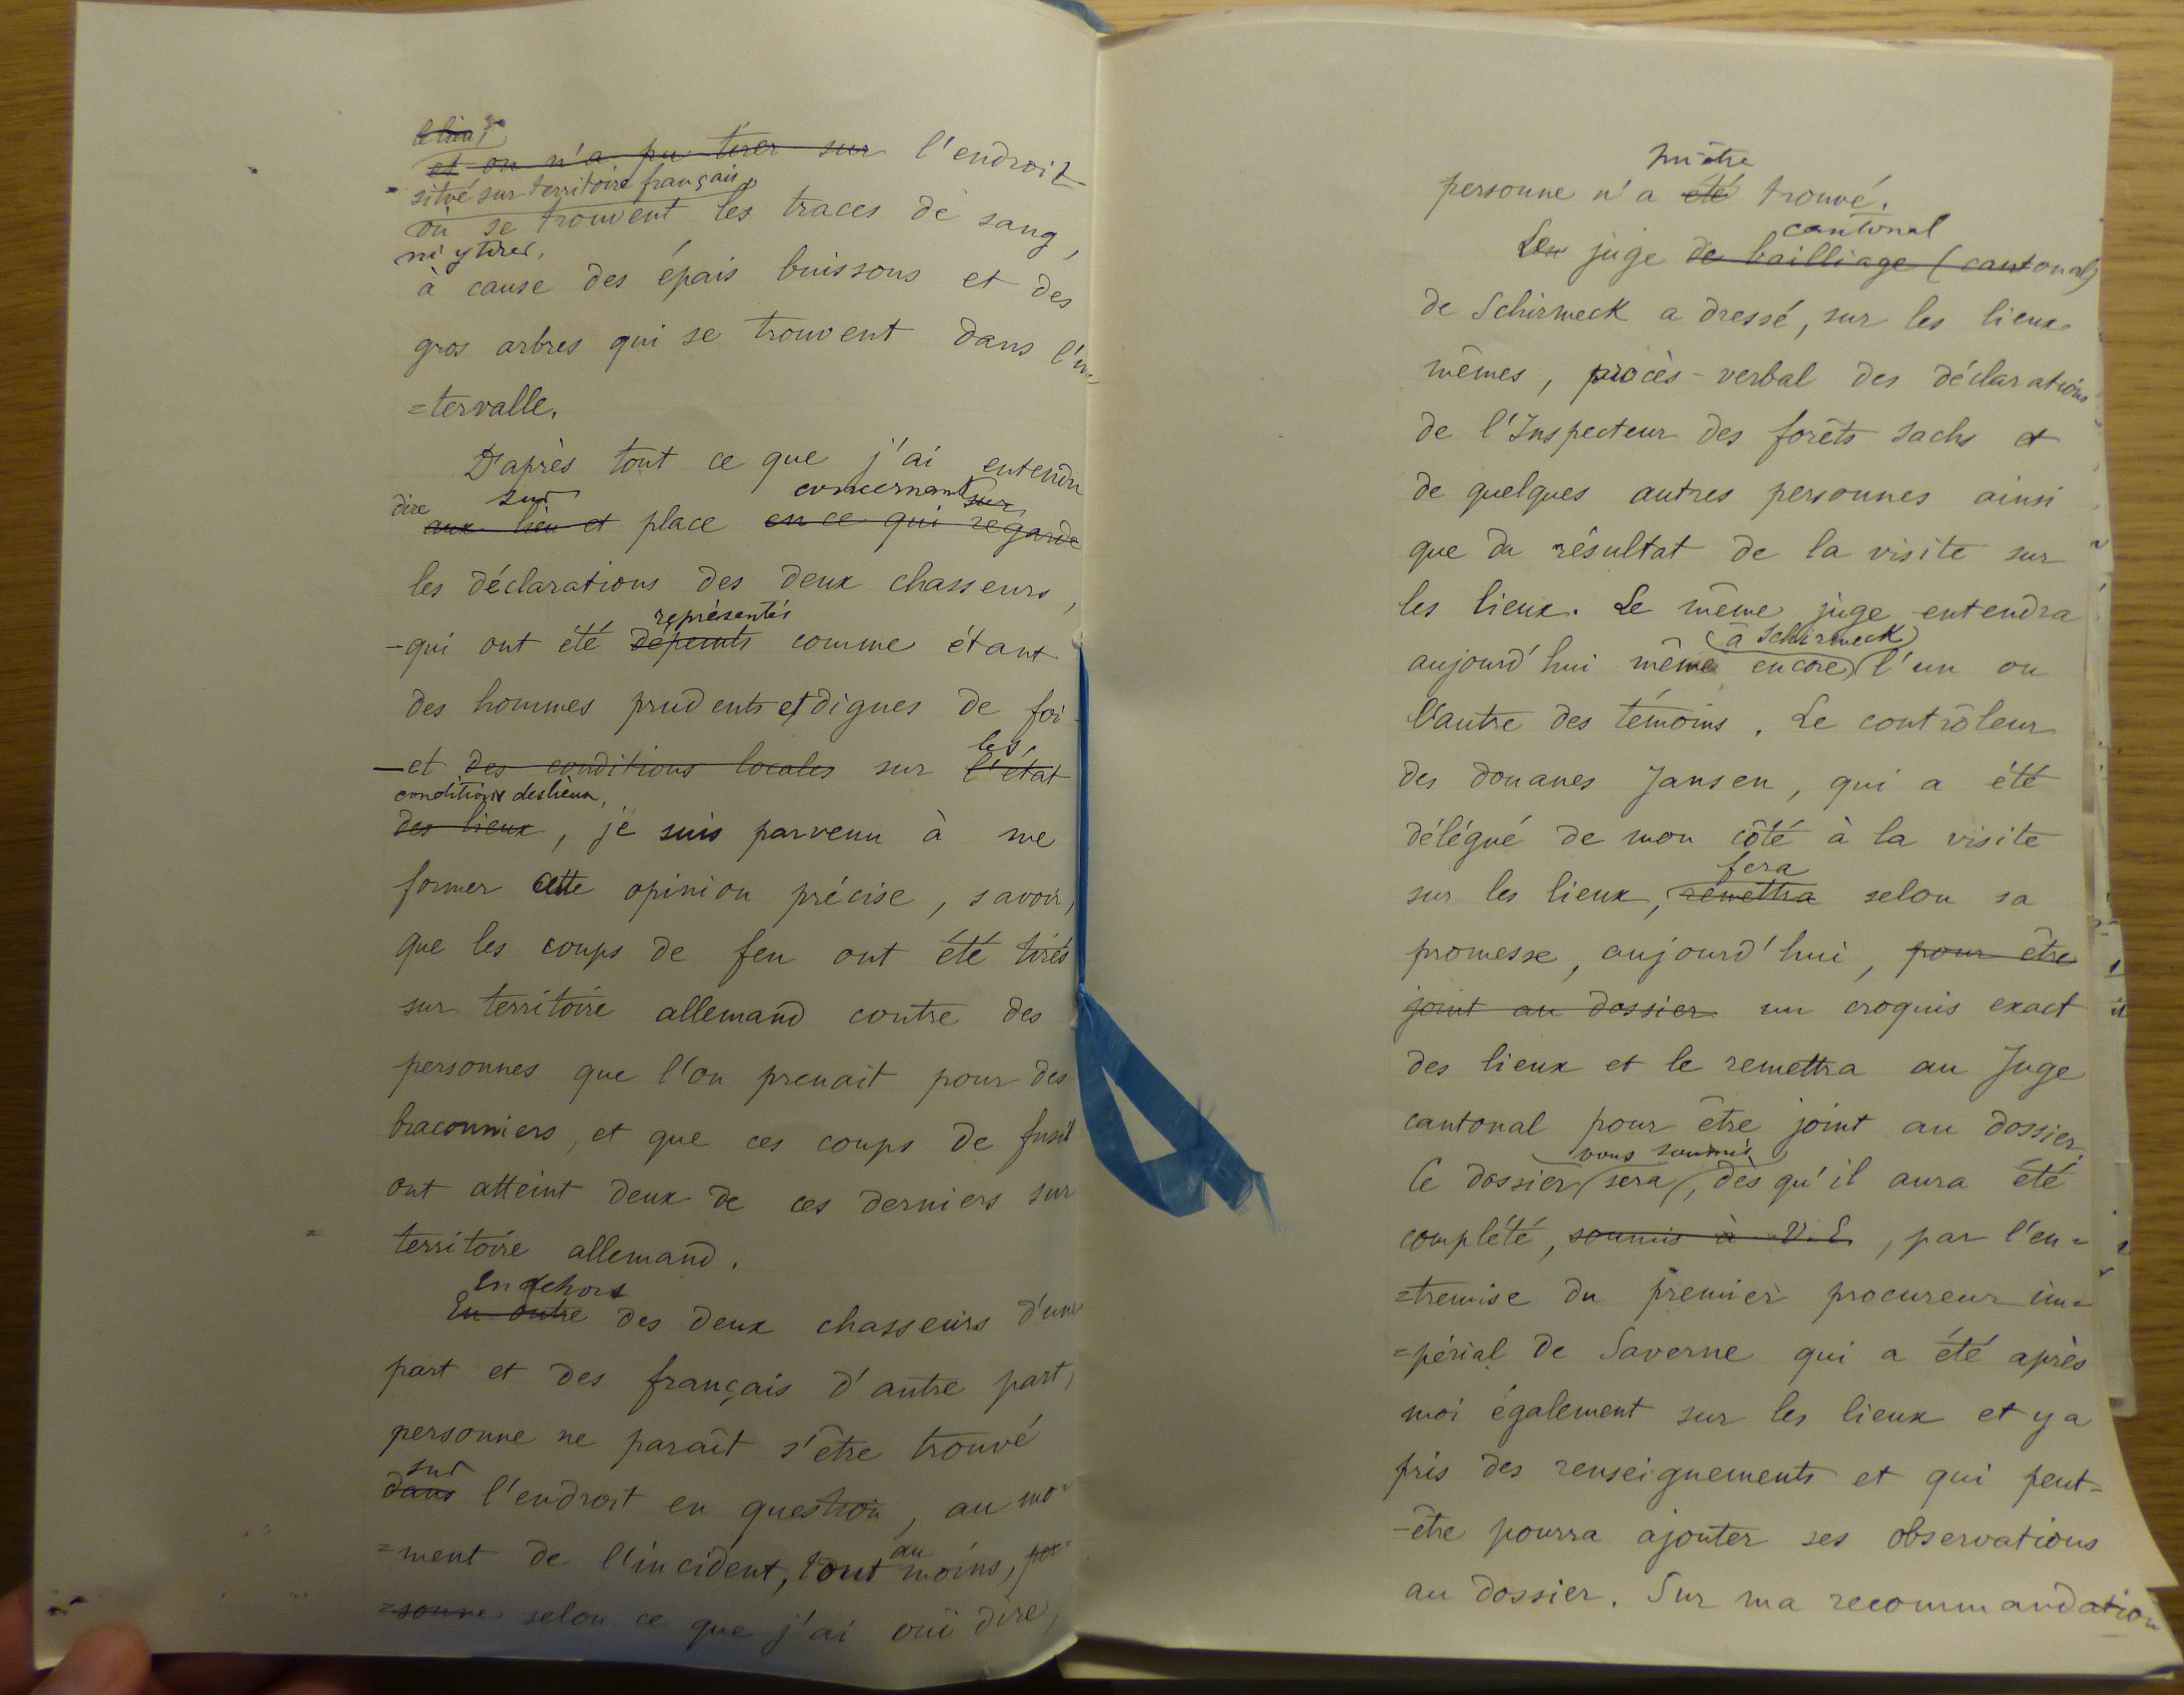 le lieu,
et on n'a pu tirer sur l'endroit
situé sur territoire français,
où se trouvent les traces de sang,
ni y tirer,
à cause des épais buissons et des
gros arbres qui se trouvent dans l'in
=tervalle.
D'après tout ce que j'ai entendu
dire sur concernant sur
aux lieu et place en ce qui regarde
les déclarations des deux chasseurs,
représentés
-qui ont été dépeints comme étant
des hommes prudents et dignes de foi-
les
-et des conditions locales sur l'état
conditions des lieux,
des lieux, je suis parvenu à me
former cette opinion précise, savoir,
que les coups de feu ont été tirés
sur territoire allemand contre des
personnes que l'on prenait pour des
braconniers, et que ces coups de fusil
ont atteint deux de ces derniers sur
territoire allemand.
En dehors
En outre des deux chasseurs d'une
part et des français d'autre part,
personne ne paraît s'être trouvé
sur
dans l'endroit en question, au mo=
=ment de l'incident, tout au moins, per=
=sonne selon ce que j'ai ouï dire,
pu être
personne n'a été trouvé.
cantonal
Le juge de bailliage (cantonal)
de Schirmeck a dressé, sur les lieux
mêmes, procès-verbal des déclarations
de l'Inspecteur des forêts Sachs et
de quelques autres personnes ainsi
que du résultat de la visite sur
les lieux. Le même juge entendra
(à Schirmeck)
aujourd'hui même encore l'un ou
l'autre des témoins. Le contrôleur
des douanes Jansen, qui a été
délégué de mon côté à la visite
fera
sur les lieux, remettra selon sa
promesse, aujourd'hui, pour être
joint au dossier un croquis exact
des lieux et le remettra au Juge
cantonal pour être joint au dossier.
vous soumis
Ce dossier sera, dès qu'il aura été
complété, soumis à V.E., par l'en=
=tremise du premier procureur im=
=périal de Saverne qui a été après
moi également sur les lieux et y a
pris des renseignements et qui peut=
-être pourra ajouter ses observations
au dossier. Sur ma recommandation